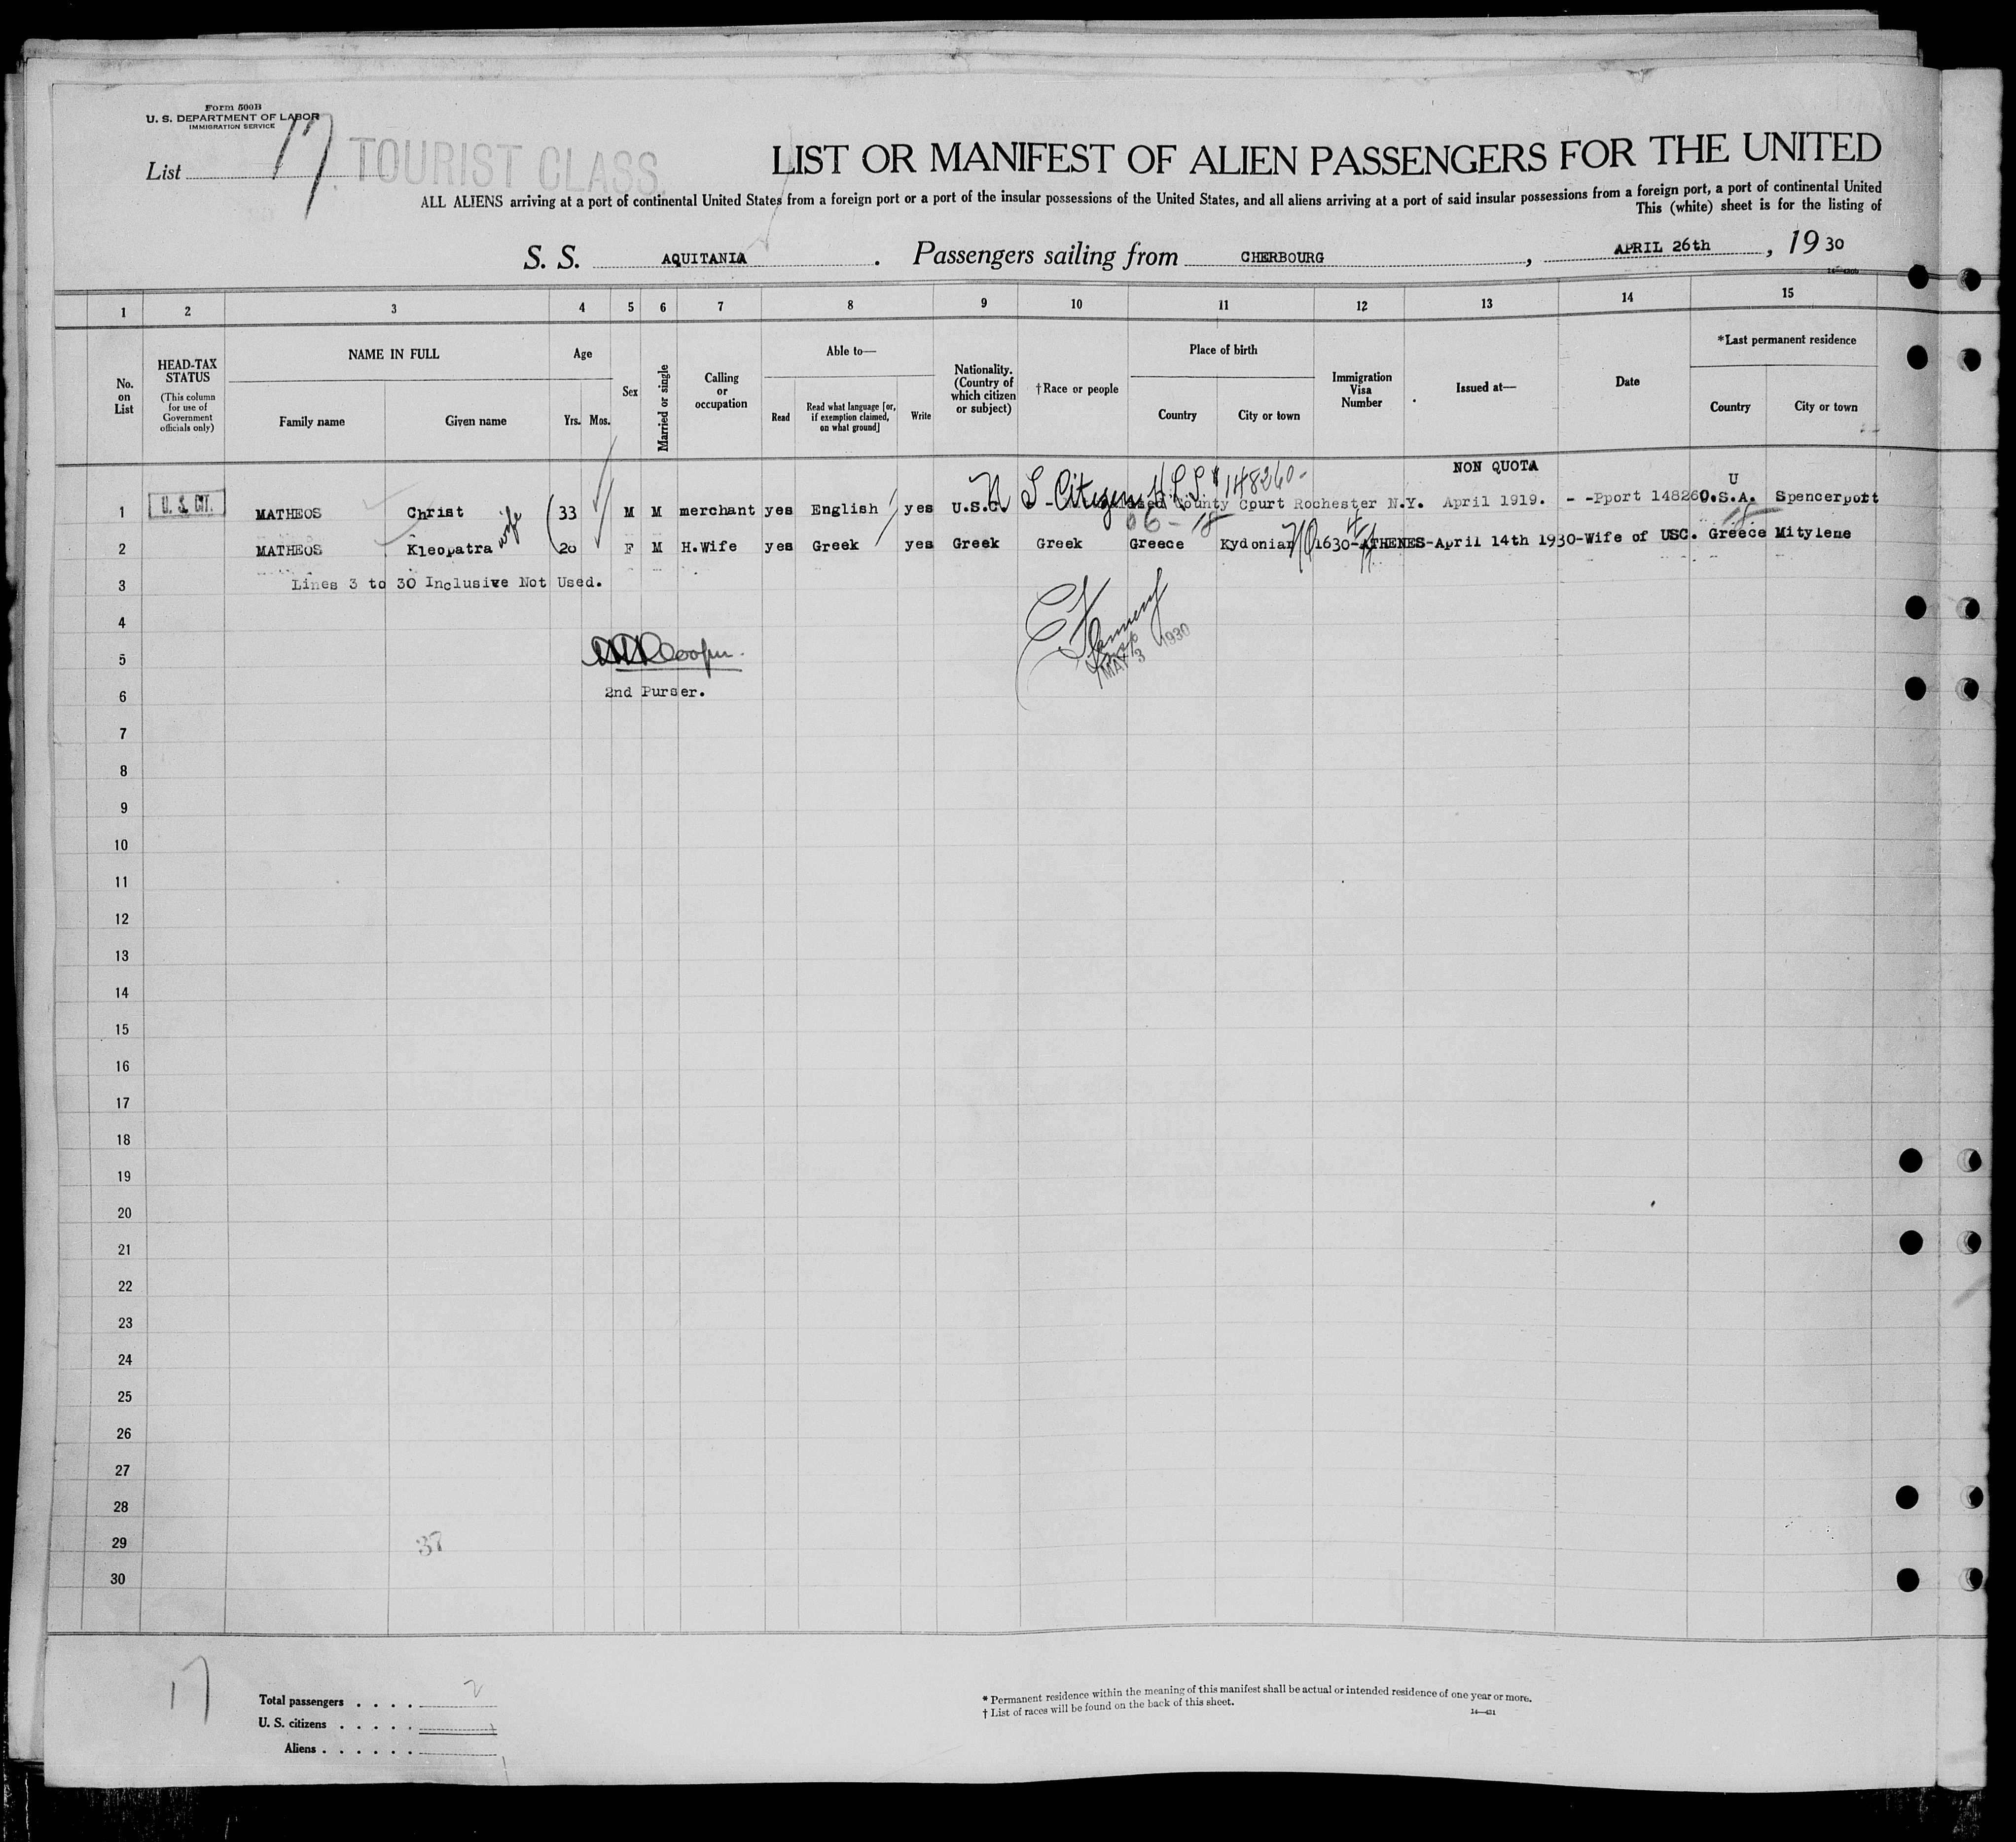 Form 500B
U. S. DEPARTMENT OF LABOR
IMMIGRATION SERVICE
List 17
TOURIST CLASS
LIST OR MANIFEST OF ALIEN PASSENGERS FOR THE UNITED
ALL ALIENS arriving at a port of continental United States from a foreign port or a port of the insular possessions of the United States, and all aliens arriving at a port of said insular possessions from a foreign port, a port of continental United
This (white) sheet is for the listing of
S. S. AQUITANIA. Passengers sailing from CHERBOURG, APRIL 26th, 1930
1 2 3 4 5 6 7 8 9 10 11 12 13 14 15
No. on List
HEAD-TAX STATUS
(This column for use of Government officials only)
NAME IN FULL
Family name Given name
Age
Yrs. Mos.
Sex
Married or single
Calling or occupation
Able to—
Read
Read what language [or, if exemption claimed, on what ground]
Write
Nationality. (Country of which citizen or subject)
†Race or people
Place of birth
Country City or town
Immigration Visa Number
Issued at—
Date
*Last permanent residence
Country City or town
NON QUOTA
U S Citizen 148260
1 U. S. CIT. MATHEOS Christ 33 M M merchant yes English yes U.S.C. County Court Rochester N.Y. April 1919. - -Pport 148260 U.S.A. Spencerport
2 MATHEOS Kleopatra wife 20 F M H.Wife yes Greek yes Greek Greek Greece Kydonian 1630-ATHENES-April 14th 1930-Wife of USC. Greece Mitylene
3 Lines 3 to 30 Inclusive Not Used.
4
5 Cooper.
MAY 3 1930
6 2nd Purser.
7
8
9
10
11
12
13
14
15
16
17
18
19
20
21
22
23
24
25
26
27
28
29 37
30
17
Total passengers . . . . 2
U. S. citizens . . . . . 1
Aliens . . . . . .
* Permanent residence within the meaning of this manifest shall be actual or intended residence of one year or more.
† List of races will be found on the back of this sheet.